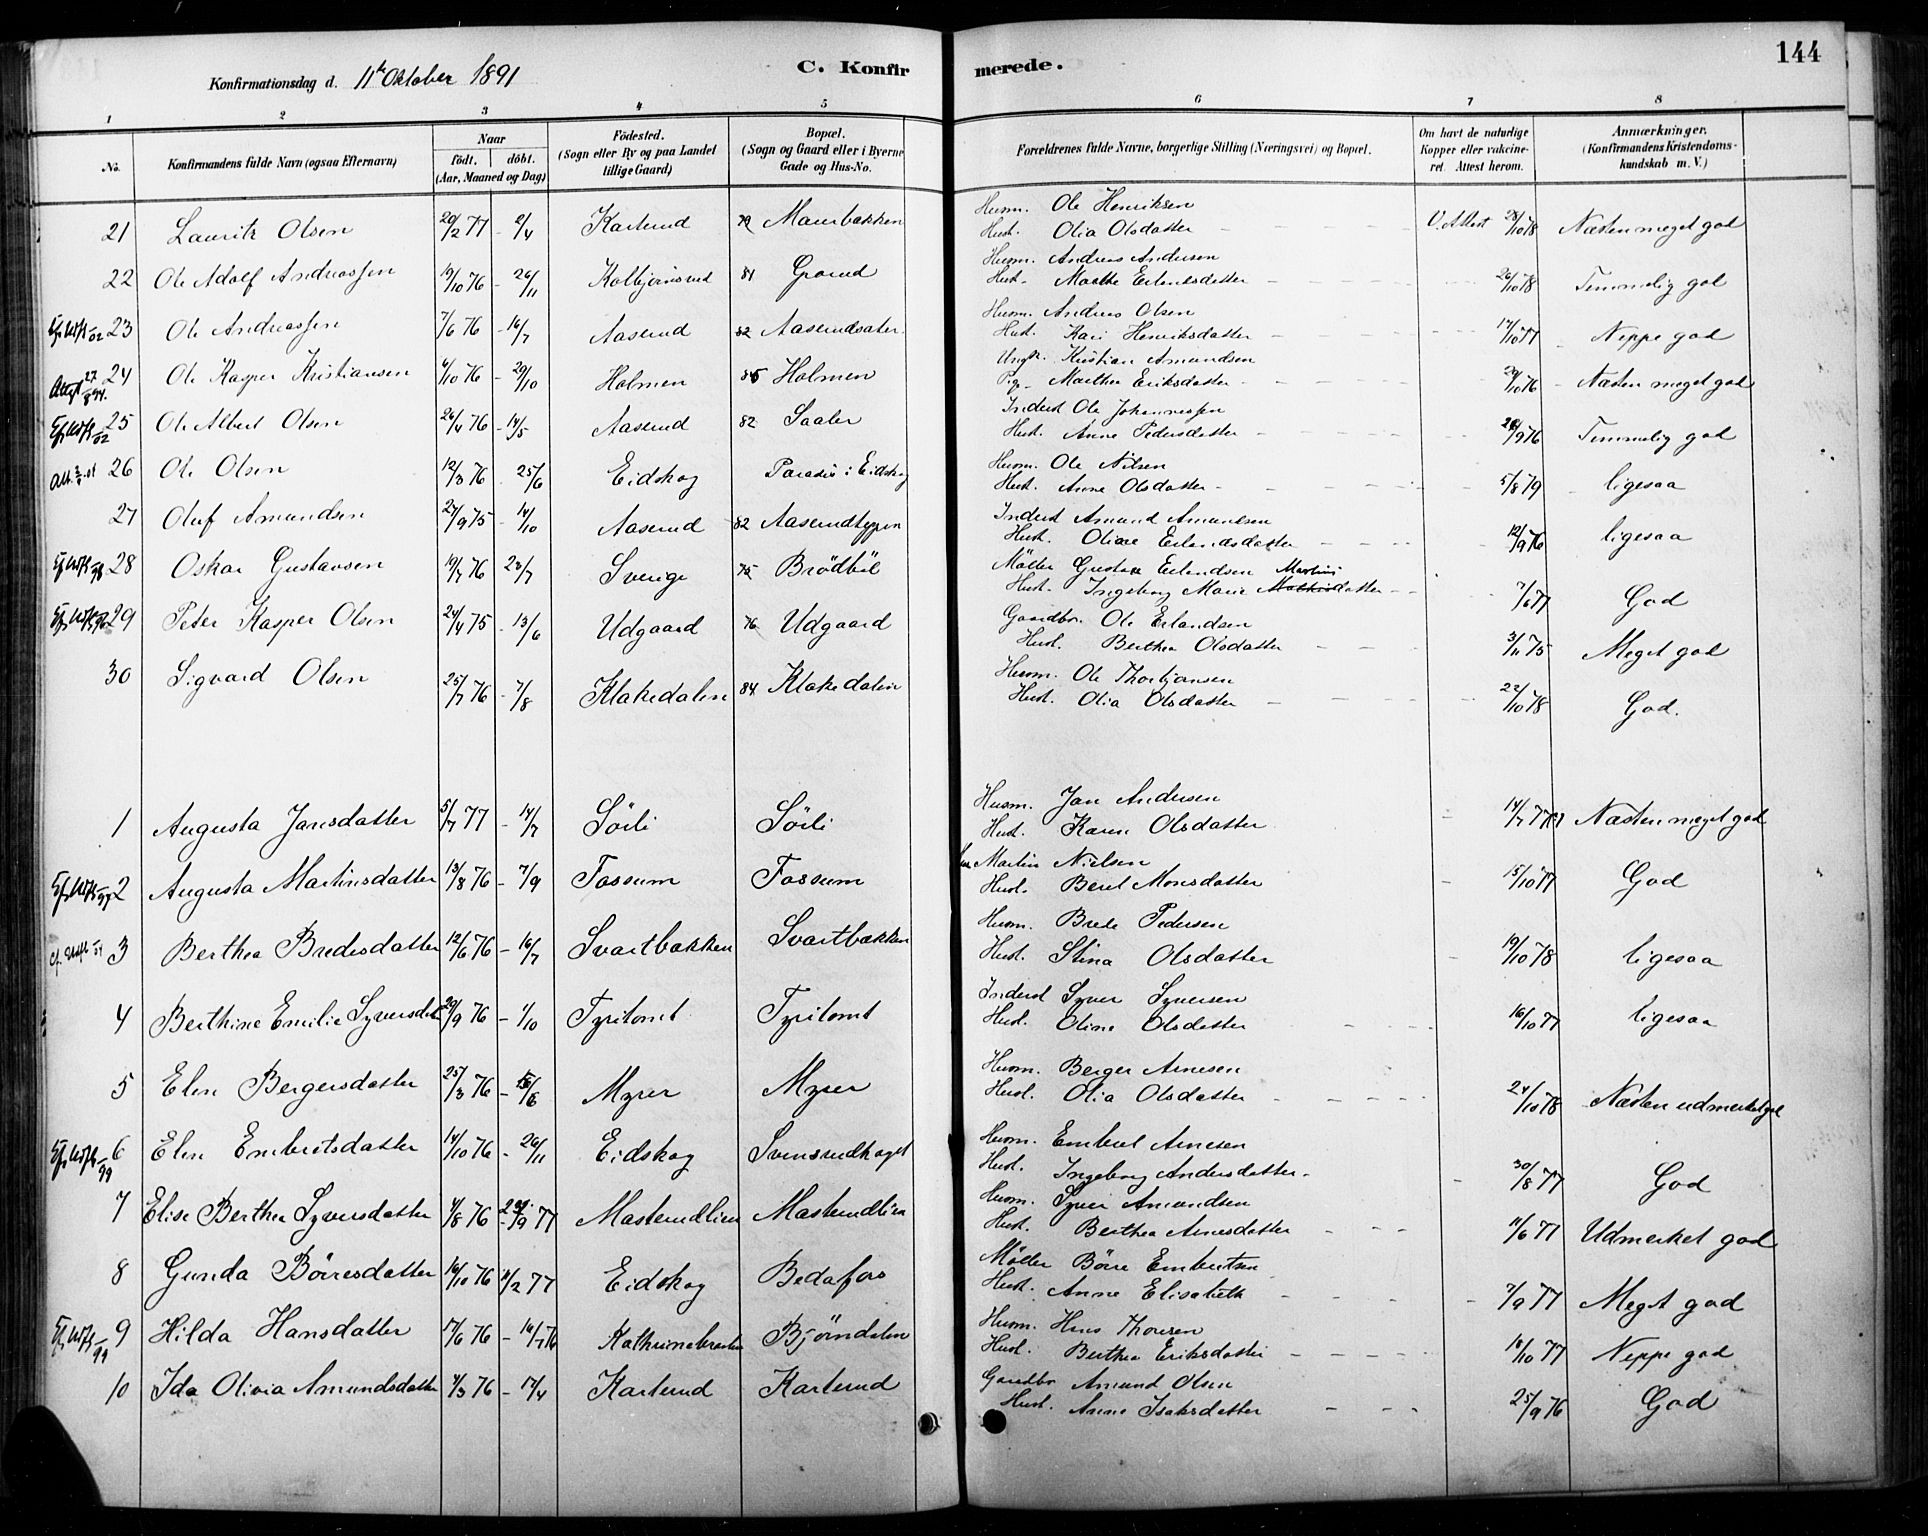 144
Konfirmationsdag d. 11te Oktober 1891
C. Konfirmerede.
1 2 3 4 5 6 7 8
No.
Konfirmandens fulde Navn (ogsaa Efternavn)
Naar
Födt. döbt.
(Aar, Maaned og Dag)
Födested.
(Sogn eller By og paa Landet
tillige Gaard)
Bopæl.
(Sogn og Gaard eller i Byerne
Gade og Hus-No.
Forældrenes fulde Navne, borgerlige Stilling (Næringsvei) og Bopæl.
Om havt de naturlige
Kopper eller vakcine-
ret. Attest herom.
Anmærkninger.
(Konfirmandens Kristendoms-
kundskab m. V.)
21 Lauritz Olsen 20/2 77 - 2/4 Karterud Maurbækken Husm. Ole Henriksen
Hust. Olia Olsdatter V. Attest 28/10 78 Næsten meget god
22 Ole Adolf Andreassen 19/10 76 - 26/11 Kolbjörnsrud 81 Grorud Husm. Andreas Andersen
Hust. Marthe Erlandsdatter 26/10 78 Temmelig god
23 Ole Andreassen 7/6 76 - 16/7 Aaserud 82 Aaserudsæter Husm. Andreas Olsen
Hust. Kari Henriksdatter 17/10 77 Neppe god
24 Ole Kasper Kristiansen 6/10 76 - 29/10 Holmen 85 Holmen Ungk. Kristian Amundsen
Pig. Marthea Eriksdatter 29/10 76 Næsten meget god
25 Ole Albert Olsen 26/4 76 - 14/5 Aaserud 82 Saater Inderst Ole Johannessen
Hust. Anne Pedersdatter 9 76 Temmelig god
26 Ole Olsen 12/3 76 25/6 Eidskog Paradis i Eidskog Husm. Ole Nilsen
Hust. Anne Olsdatter 5/8 79 ligesaa
27 Oluf Amundsen 27/9 75 - 14/10 Aaserud 82 Aaserudtyppen Inderst Amund Amundsen
Hust. Oliane Erlandsdatter 12/9 76 ligesaa
28 Oskar Gustavsen 19/7 76 23/7 Sverige 75 Brödböl Möller Gustav Erlandsen
Hust. Ingeborg Marie Martinsdatter 7/6 77 God
29 Peter Kasper Olsen 24/4 75 - 13/6 Udgaard 76 Udgaard Gaardbr. Ole Erlandsen
Hust. Berthea Olsdatter 3/11 75 Meget god
30 Sigvard Olsen 25/7 76 - 7/8 Klakedalen 84 Klakedalen Husm. Ole Thorbjønsen
Hust. Olia Olsdatter 22/10 78 God.
1 Augusta Jansdatter 5/7 77 - 14/7 Sörli Sörli Husm. Jan Andersen
Hust. Karen Olsdatter 14/7 77 Næsten meget god
2 Augusta Martinsdatter 13/8 76 - 7/9 Fossum Fossum Martin Nielsen
Hust. Beret Monsdatter 15/10 77 God
3 Berthea Bredesdatter 12/6 76 - 16/7 Svartbækken Svartbækken Husm. Brede Pedersen
Hust. Stina Olsdatter 19/10 78 ligesaa
4 Berthine Emilie Syversdat 20/9 76 - 1/10 Tyritomt Tyritomt Inderst Syver Syversen
Hust. Oline Olsdatter 16/10 77 ligesaa
5 Elen Bergersdatter 25/3 76 - /6 Myrer Myrer Husm. Berger Arnesen
Hust. Olia Olsdatter 24/10 78 Næsten udmerket god
6 Elen Embretsdatter 14/10 76 - 26/11 Eidskog Svensrudhaget Husm. Embret Arnesen
Hust. Ingeborg Andersdatter 30/8 77 God
7 Elise Berthea Syversdatter 4/8 76 /9 77 Masterudlien Masterudlien Husm. Syver Amundsen
Hust. Berthea Arnesdatter 11/6 77 Udmerket god
8 Gunda Börresdatter 16/10 76 11/2 77 Eidskog Bedafos Möller Börre Embretsen
Hust. Anne Elisabeth 7/9 77 Meget god
9 Hilda Hansdatter 17/6 76 - 16/7 76 Kathrinebraaten Björndalen Husm. Hans Thoresen
Hust. Berthea Eriksdatter 10/10 77 Neppe god
10 Ida Olivia Amundsdatter 4/3 76 - 17/4 Karterud Karterud Gaardbr Amund Olsen
Hust. Anne Isaksdatter 25/9 76 God